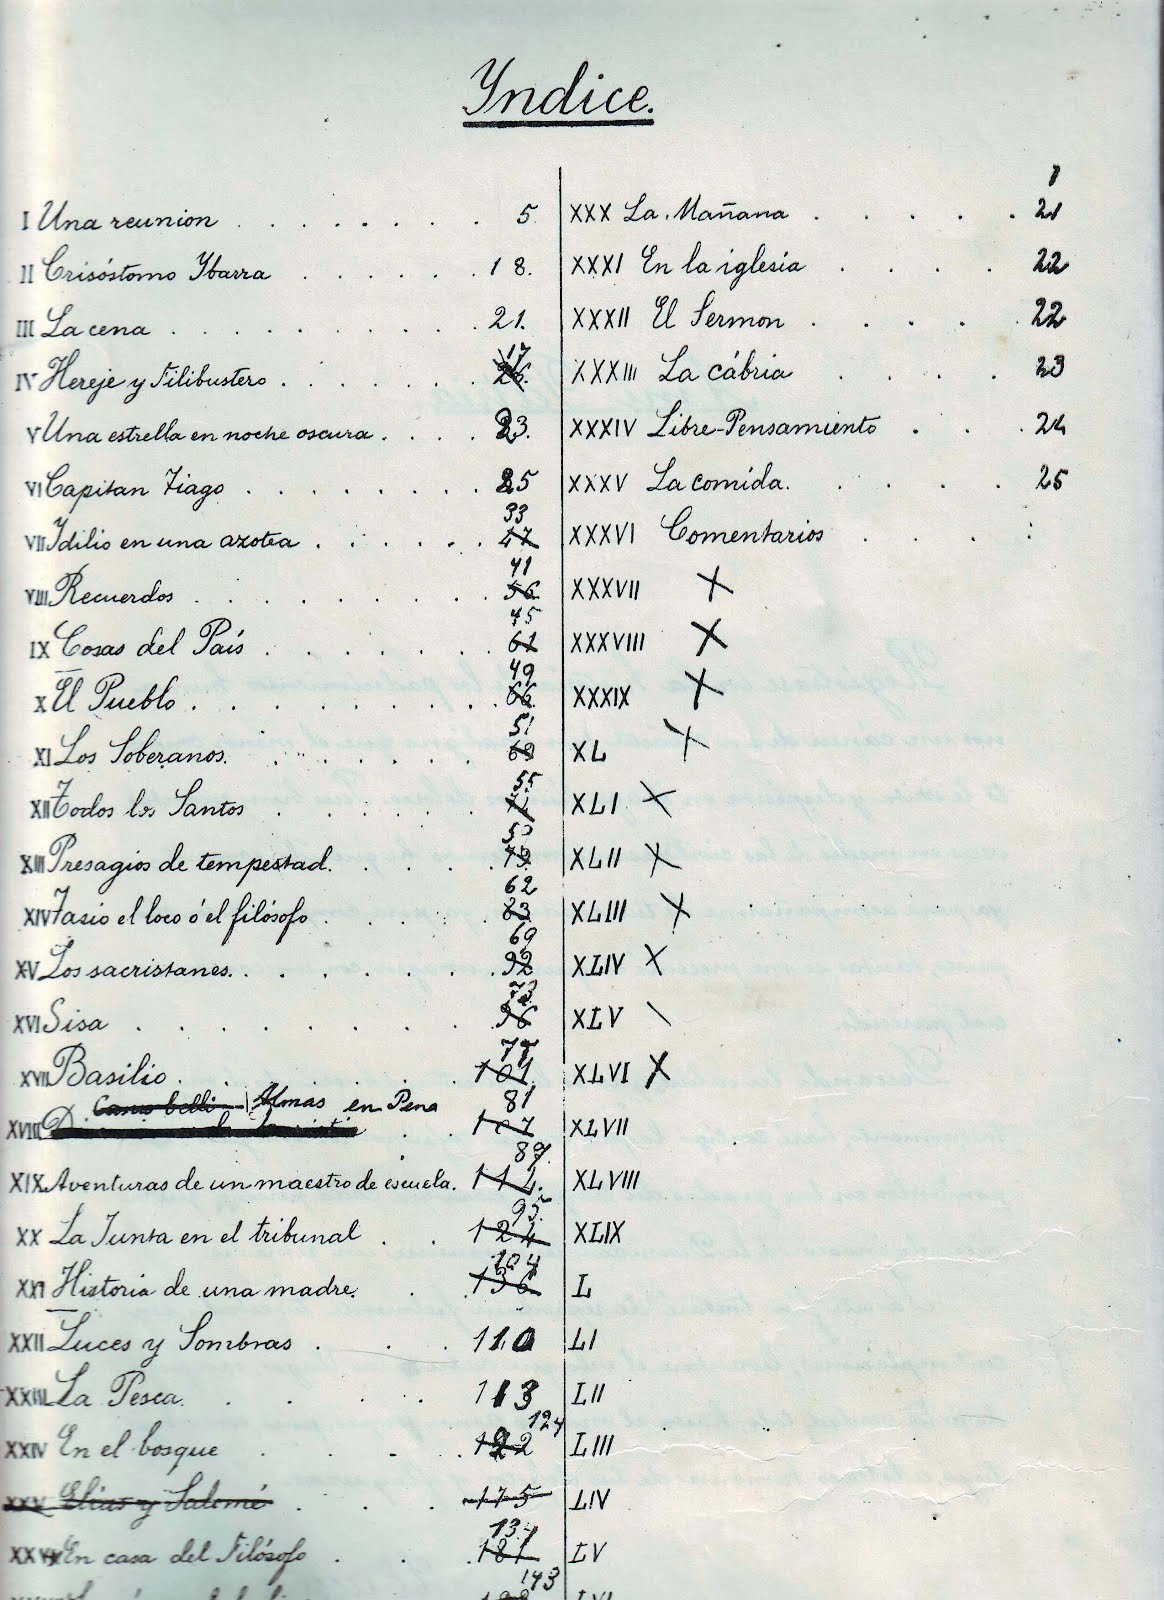 Yndice.
I Una reunion 5
II Crisóstomo Ybarra 18.
III La cena 21.
IV Hereje y Filibustero 17 26.
V Una estrella en noche oscura 23.
VI Capitan Tiago 25
VII Idilio en una azotea 33 47
VIII Recuerdos 41 56
IX Cosas del País 45 61
X El Pueblo 49 66
XI Los Soberanos. 51
XII Todos los Santos 55
XIII Presagios de tempestad.
XIV Tasio el loco ó el filósofo 62 83
XV Los sacristanes. 69 92
XVI Sisa 73 96
XVII Basilio. 77 101
XVIII Almas en Pena 81 107
XIX Aventuras de un maestro de escuela. 89 114
XX La Junta en el tribunal 95 124
XXI Historia de una madre. 104 136
XXII Luces y Sombras 110
XXIII La Pesca 113
XXIV En el bosque 124 122
XXV Elías y Salomé 175
En casa del Filósofo 134 181
143
XXX La Mañana 21
XXXI En la iglesia 22
XXXII El Sermon 22
XXXIII La cábria 23
XXXIV Libre-Pensamiento 24
XXXV La comida. 25
XXXVI Comentarios
XXXVII X
XXXVIII X
XXXIX X
XL X
XLI X
XLII X
XLIII X
XLIV X
XLV \
XLVI X
XLVII
XLVIII
XLIX
L
LI
LII
LIII
LIV
LV